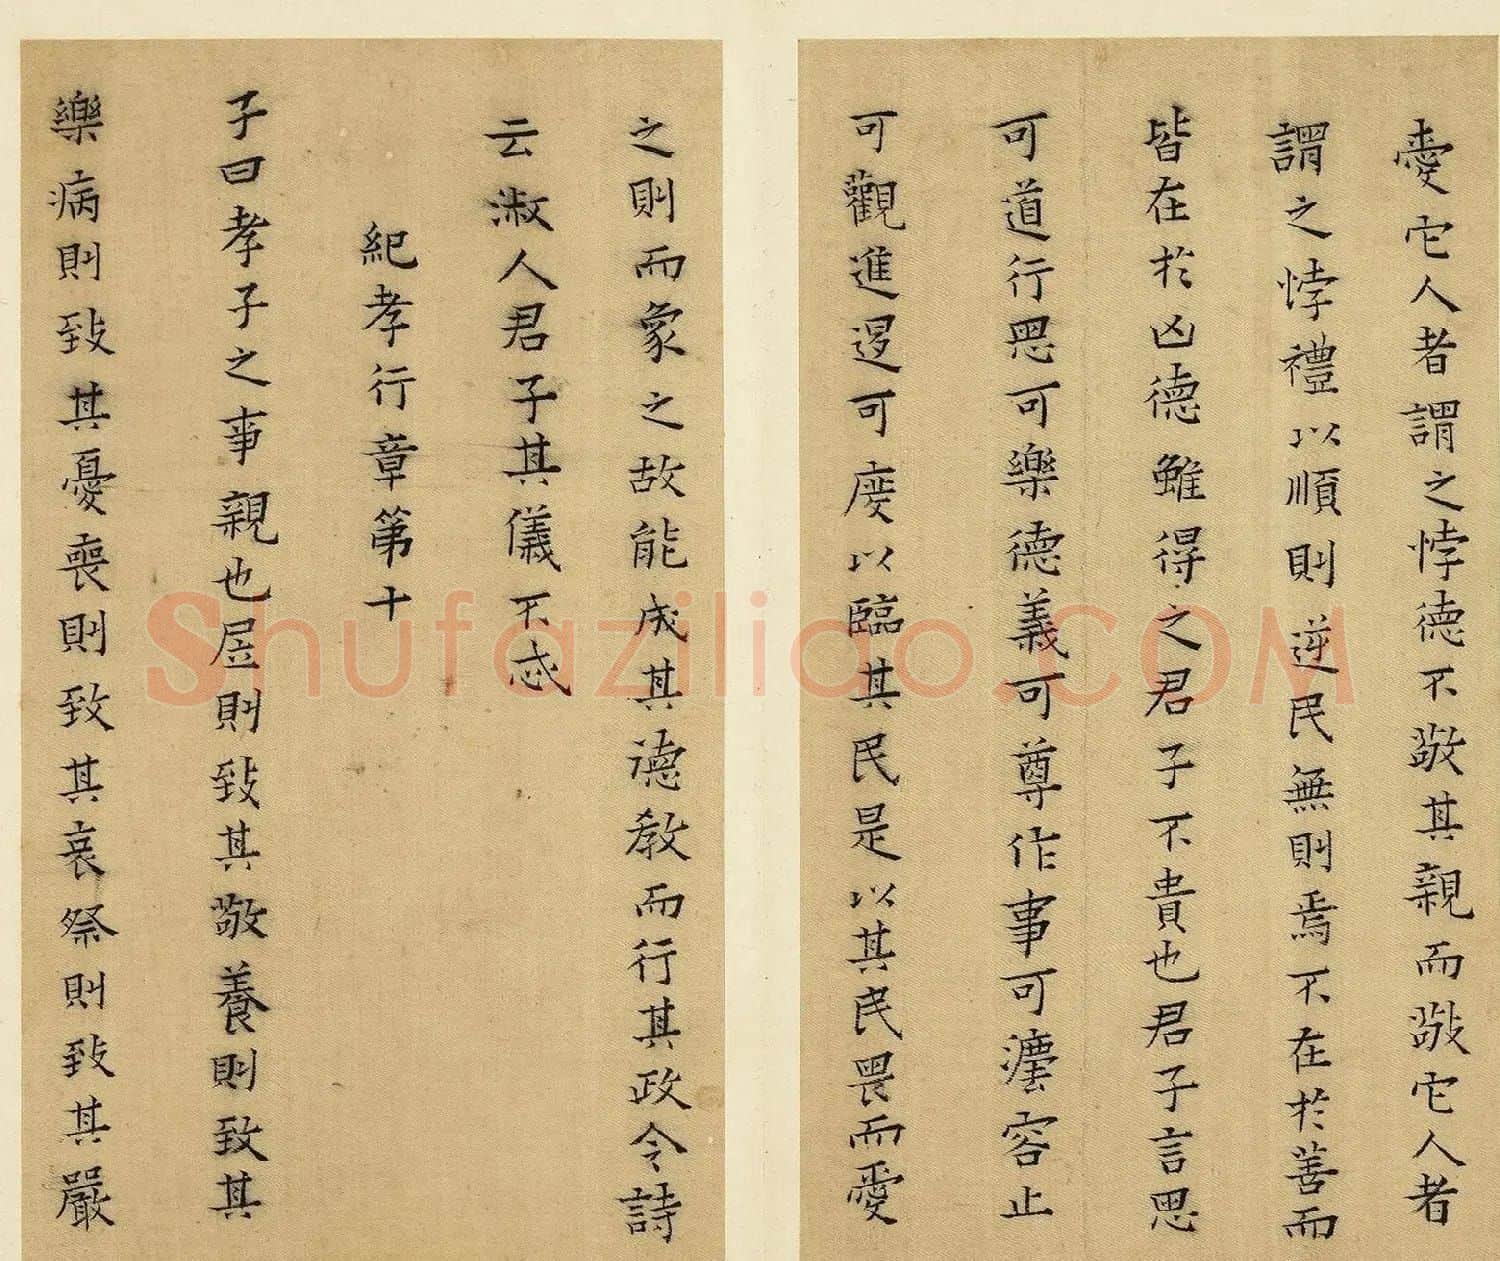 愛它人者謂之悖德不敬其親而敬它人者
謂之悖禮以順則逆民無則焉不在於善而
皆在於凶德雖得之君子不貴也君子言思
可道行思可樂德義可尊作事可灋容止
可觀進退可度以臨其民是以其民畏而愛
之則而象之故能成其德教而行其政令詩
云淑人君子其儀不忒
紀孝行章第十
子曰孝子之事親也居則致其敬養則致其
樂病則致其憂喪則致其哀祭則致其嚴
shufaziliao.COM